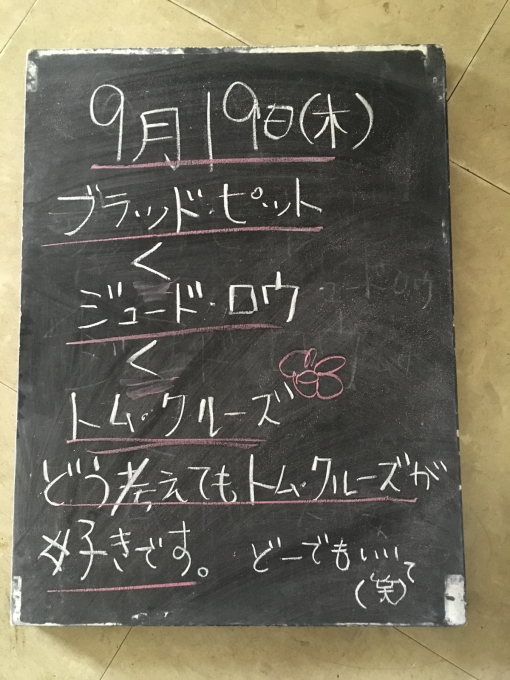 9月19日(木)
ブラッド・ピット
<
ジュード・ロウ
<
トム・クルーズ
どう考えてもトム・クルーズが
好きです。 どーでもいいって
(笑)